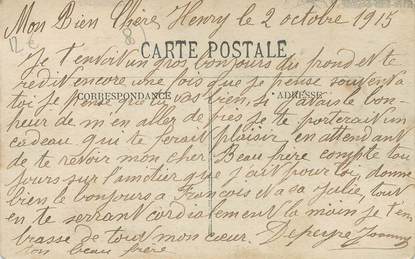 Mon Bien Chère Henry le 2 octobre 1915
12 €
8
CARTE POSTALE
Je t'envoit un gros bonjours du frond et te
redit encore une fois que je pense souvent a
CORRESPONDANCE ADRESSE
toi je pense que tu vas bien, si j'avais le bon-
heur de m'en aller de pies je te porterait un
cadeau qui te ferait plaisir en attendant
de te revoir mon cher Beau frère compte tou
jours sur l'amitier que j'ait pour toi, donne
bien le bonjours a Francois et a sa Julie, tout
en te serrant cordialement la main je t'em
brasse de tout mon cœur. Depeyre
ton beau frère